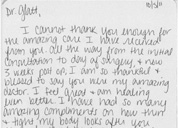 Dr. Glatt,
10/3/11
I cannot thank you enough for
the amazing care I have received
from you all the way from the initial
consultation to day of surgery, & now
3 weeks post op. I am so thankful &
blessed to say you were my amazing
doctor. I feel great & am healing
even better. I have had so many
amazing compliments on how thin
& tight my body looks after you